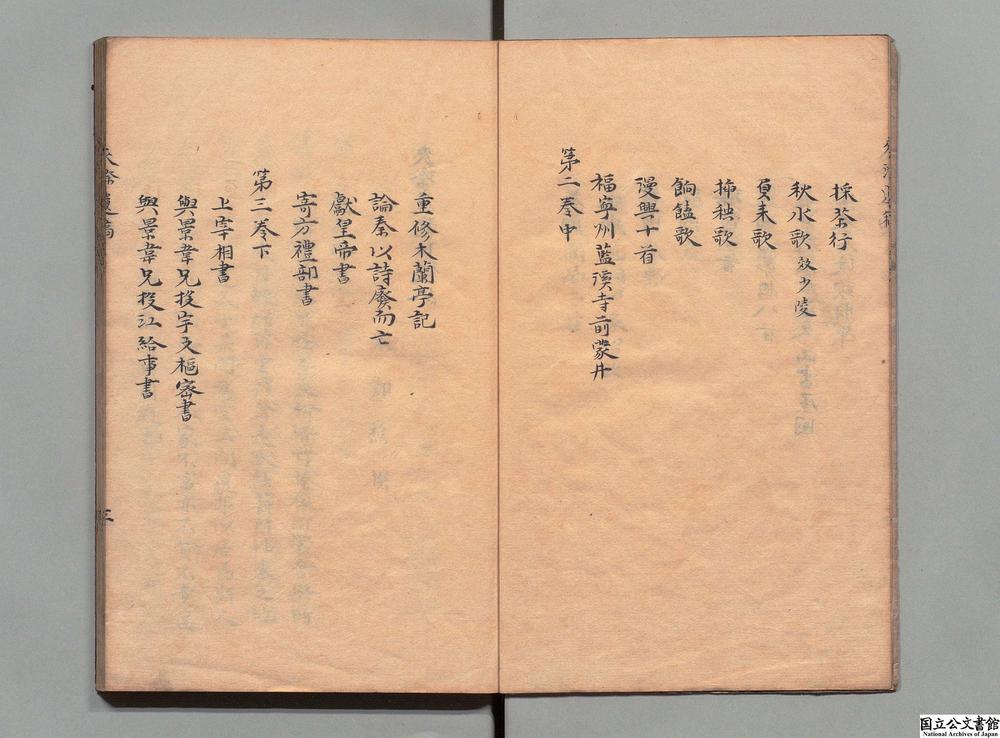 採茶行
秋水歌 效少陵
負耒歌
插秧歌
餉饁歌
漫興十首
福寧州藍溪寺前蒙井
第二卷中
重修木蘭亭記
論秦以詩廢而亡
獻皇帝書
寄方禮部書
第三卷下
上宰相書
與景韋兄投宇文樞密書
與景韋兄投江給事書
夾漈遺稿
三
国立公文書館
National Archives of Japan